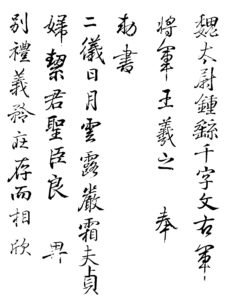 魏太尉鍾繇千字文右軍
將軍王羲之 奉
勑書
二儀日月雲露嚴霜夫貞
婦絜君聖臣良
別禮義矜莊存而相欣